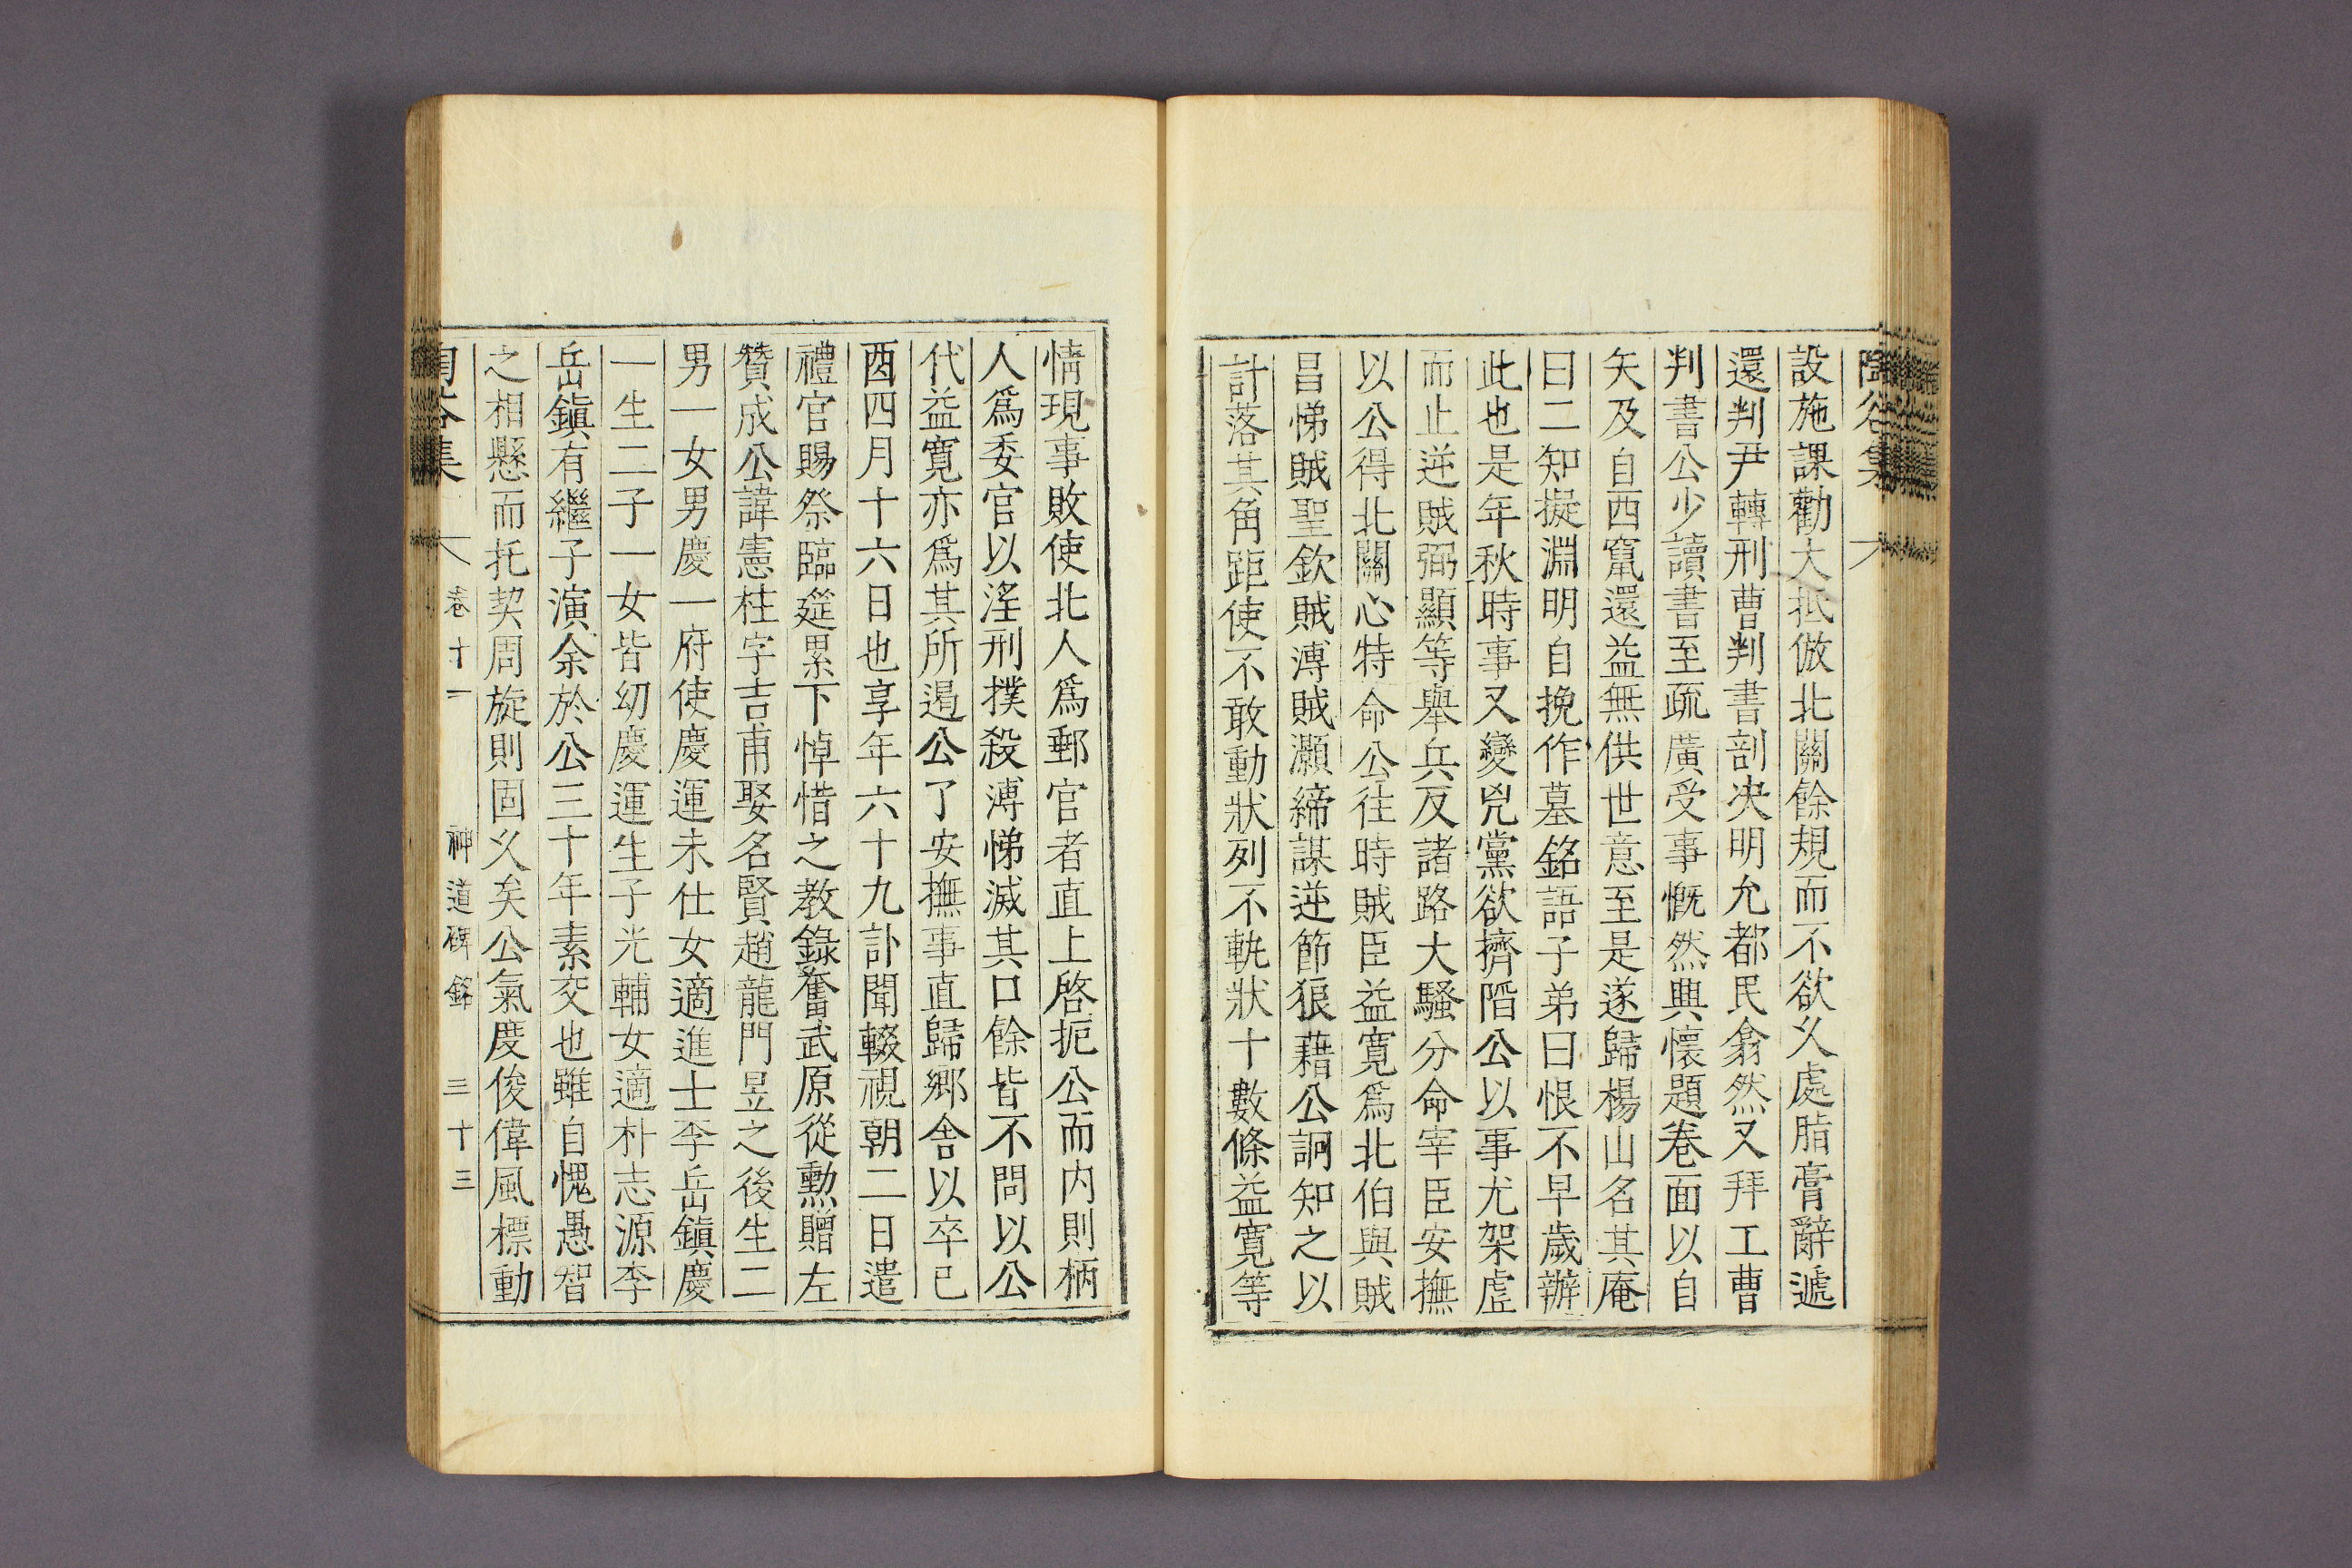 陶谷集
設施課勸大抵倣北關餘規而不欲乆處脂膏辭遞
還判尹轉刑曹判書剖决明允都民翕然又拜工曹
判書公少讀書至疏廣受事慨然興懷題卷面以自
矢及自西竄還益無供世意至是遂歸楊山名其庵
曰二知擬淵明自挽作墓銘語子弟曰恨不早歲辦
此也是年秋時事又變兇黨欲擠陷公以事尤架虛
而止逆賊弼顯等舉兵反諸路大騷分命宰臣安撫
以公得北關心特命公往時賊臣益寬爲北伯與賊
昌悌賊聖欽賊溥賊灝締謀逆節狼藉公詗知之以
計落其角距使不敢動狀列不軌狀十數條益寬等
情現事敗使北人爲郵官者直上啓扼公而内則柄
人爲委官以淫刑撲殺溥悌滅其口餘皆不問以公
代益寬亦爲其所遏公了安撫事直歸鄉舍以卒已
酉四月十六日也享年六十九訃聞輟視朝二日遣
禮官賜祭臨筵累下悼惜之教錄奮武原從勲贈左
贊成公諱憲柱字吉甫娶名賢趙龍門昱之後生二
男一女男慶一府使慶運未仕女適進士李岳鎮慶
一生二子一女皆幼慶運生子光輔女適朴志源李
岳鎮有繼子演余於公三十年素交也雖自愧愚智
之相懸而托契周旋則固乆矣公氣度俊偉風標動
陶谷集 卷十一 神道碑銘 三十三